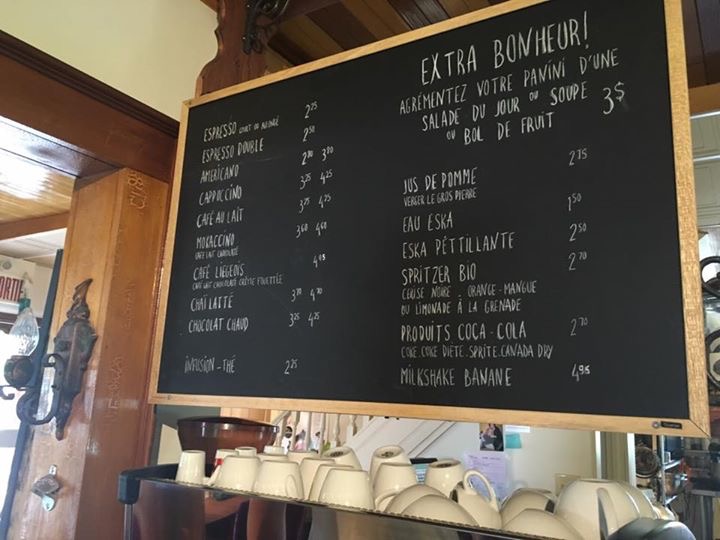 ESPRESSO COURT OU ALLONGÉ 2.25
ESPRESSO DOUBLE 2.50
AMERICANO 2.80 3.80
CAPPUCCINO 3.25 4.25
CAFÉ AU LAIT 3.25 4.25
MOKACCINO 3.60 4.60
CAFÉ LAIT CHOCOLATÉ
CAFÉ LIÉGEOIS 4.05
CAFÉ LAIT CHOCOLATÉ CRÈME FOUETTÉE
CHAÏ LATTÉ 3.70 4.70
CHOCOLAT CHAUD 3.25 4.25
INFUSION - THÉ 2.25
EXTRA BONHEUR!
AGRÉMENTEZ VOTRE PANINI D'UNE
SALADE DU JOUR OU SOUPE 3$
OU BOL DE FRUIT
JUS DE POMME 2.75
VERGER LE GROS PIERRE
EAU ESKA 1.50
ESKA PÉTTILLANTE 2.50
SPRITZER BIO 2.70
CERISE NOIRE - ORANGE - MANGUE
OU LIMONADE À LA GRENADE
PRODUITS COCA-COLA 2.70
COKE. COKE DIÈTE. SPRITE. CANADA DRY
MILKSHAKE BANANE 4.95